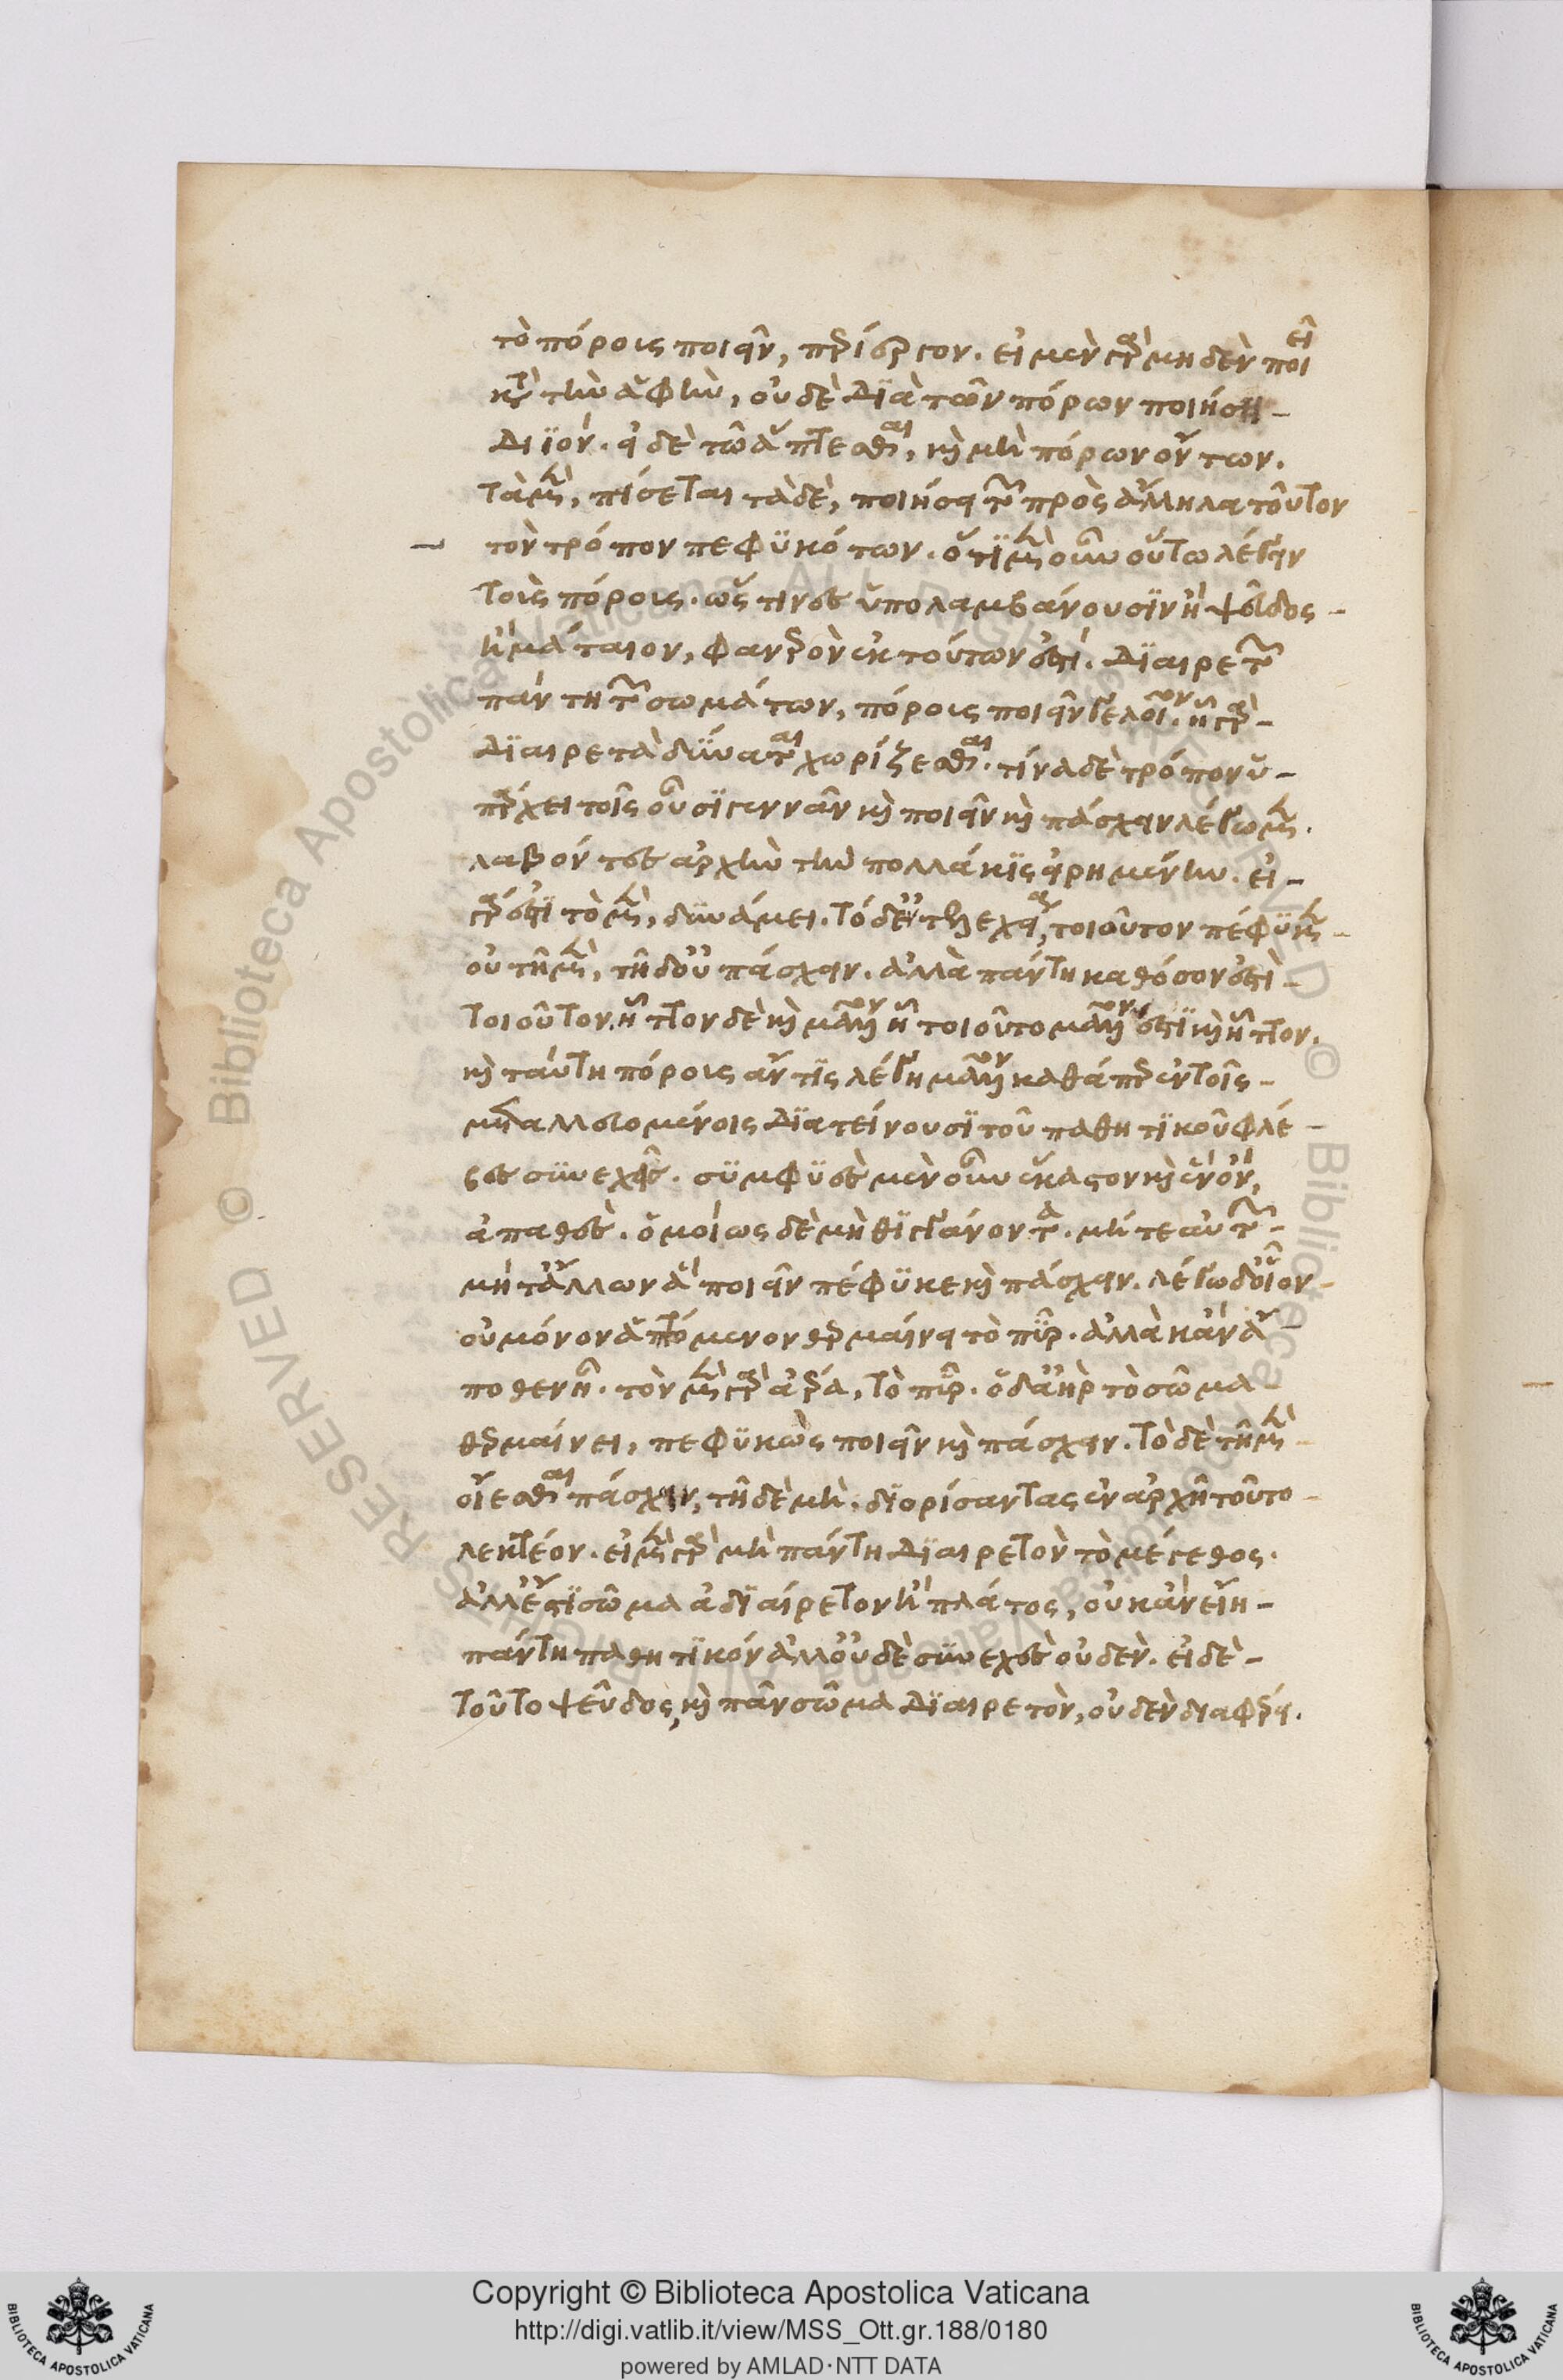 τὸ πόρους ποιεῖν, περίεργον. εἰ μὲν γὰρ μηδὲν ποιεῖ
κατὰ τὴν ἁφὴν, οὐδὲ διὰ τῶν πόρων ποιήσει
διϊόν. εἰ δὲ τῶ ἅπτεσθαι, καὶ μὴ πόρων ὄντων.
τὰ μὲν, πείσεται τὰ δὲ, ποιήσει τῶν πρὸς ἄλληλα τοῦτον
τὸν τρόπον πεφυκότων. ὅτι μὲν οὖν οὕτω λέγειν
τοὺς πόρους. ὥς τινες ὑπολαμβάνουσιν ἢ ψεῦδος
ἢ μάταιον, φανερὸν ἐκ τούτων ἐστί. διαιρετῶν
πάντη τῶν σωμάτων, πόρους ποιεῖν γελοῖον. ἧ γὰρ
διαιρετὰ δύναται χωρίζεσθαι. τίνα δὲ τρόπον ὑ-
πάρχει τοῖς οὖσι γεννᾶν καὶ ποιεῖν καὶ πάσχειν λέγωμεν.
λαβόντες ἀρχὴν τὴν πολλάκις εἰρημένην. εἰ
γάρ ἐστι τὸ μὲν, δυνάμει. τὸ δ' ἐντελεχείᾳ, τοιοῦτον πέφυκεν
οὐ τῇ μὲν, τῇ δ' οὐ πάσχειν. ἀλλὰ πάντη καθόσον ἐστὶ
τοιοῦτον, ἧττον δὲ καὶ μᾶλλον ἧ τοιοῦτο μᾶλλόν ἐστι καὶ ἧττον.
καὶ ταύτη πόρους ἄν τις λέγη μᾶλλον καθάπερ ἐν τοῖς
μεταλλευομένοις διατείνουσι τοῦ παθητικοῦ φλέ
βες συνεχεῖς. συμφυὲς μὲν οὖν ἕκαστον καὶ ἓν ὂν,
ἀπαθές. ὁμοίως δὲ μὴ θιγγάνοντα. μήτε αὐτῶν
μήτ' ἄλλων ἃ ποιεῖν πέφυκε καὶ πάσχειν. λέγω δ' οἷον
οὐ μόνον ἁπτόμενον θερμαίνει τὸ πῦρ. ἀλλὰ κἂν ἄ
ποθεν ἧ. τὸν μὲν γὰρ ἀέρα, τὸ πῦρ. ὁ δ' ἀὴρ τὸ σῶμα
θερμαίνει, πεφυκὼς ποιεῖν καὶ πάσχειν. τὸ δὲ τῇ μὲν
οἴεσθαι πάσχειν, τῇ δὲ μὴ, διορίσαντας ἐν ἀρχῇ τοῦτο
λεκτέον. εἰ μὲν γὰρ μὴ πάντη διαιρετὸν τὸ μέγεθος.
ἀλλ' ἔστι σῶμα ἀδιαίρετον ἢ πλάτος, οὐκ ἂν εἴη
πάντη παθητικόν ἀλλ' οὐδὲ συνεχὲς οὐδέν. εἰ δὲ
τοῦτο ψεῦδος, καὶ πᾶν σῶμα διαιρετὸν, οὐδὲν διαφέρει.
Copyright © Biblioteca Apostolica Vaticana
http://digi.vatlib.it/view/MSS_Ott.gr.188/0180
powered by AMLAD·NTT DATA